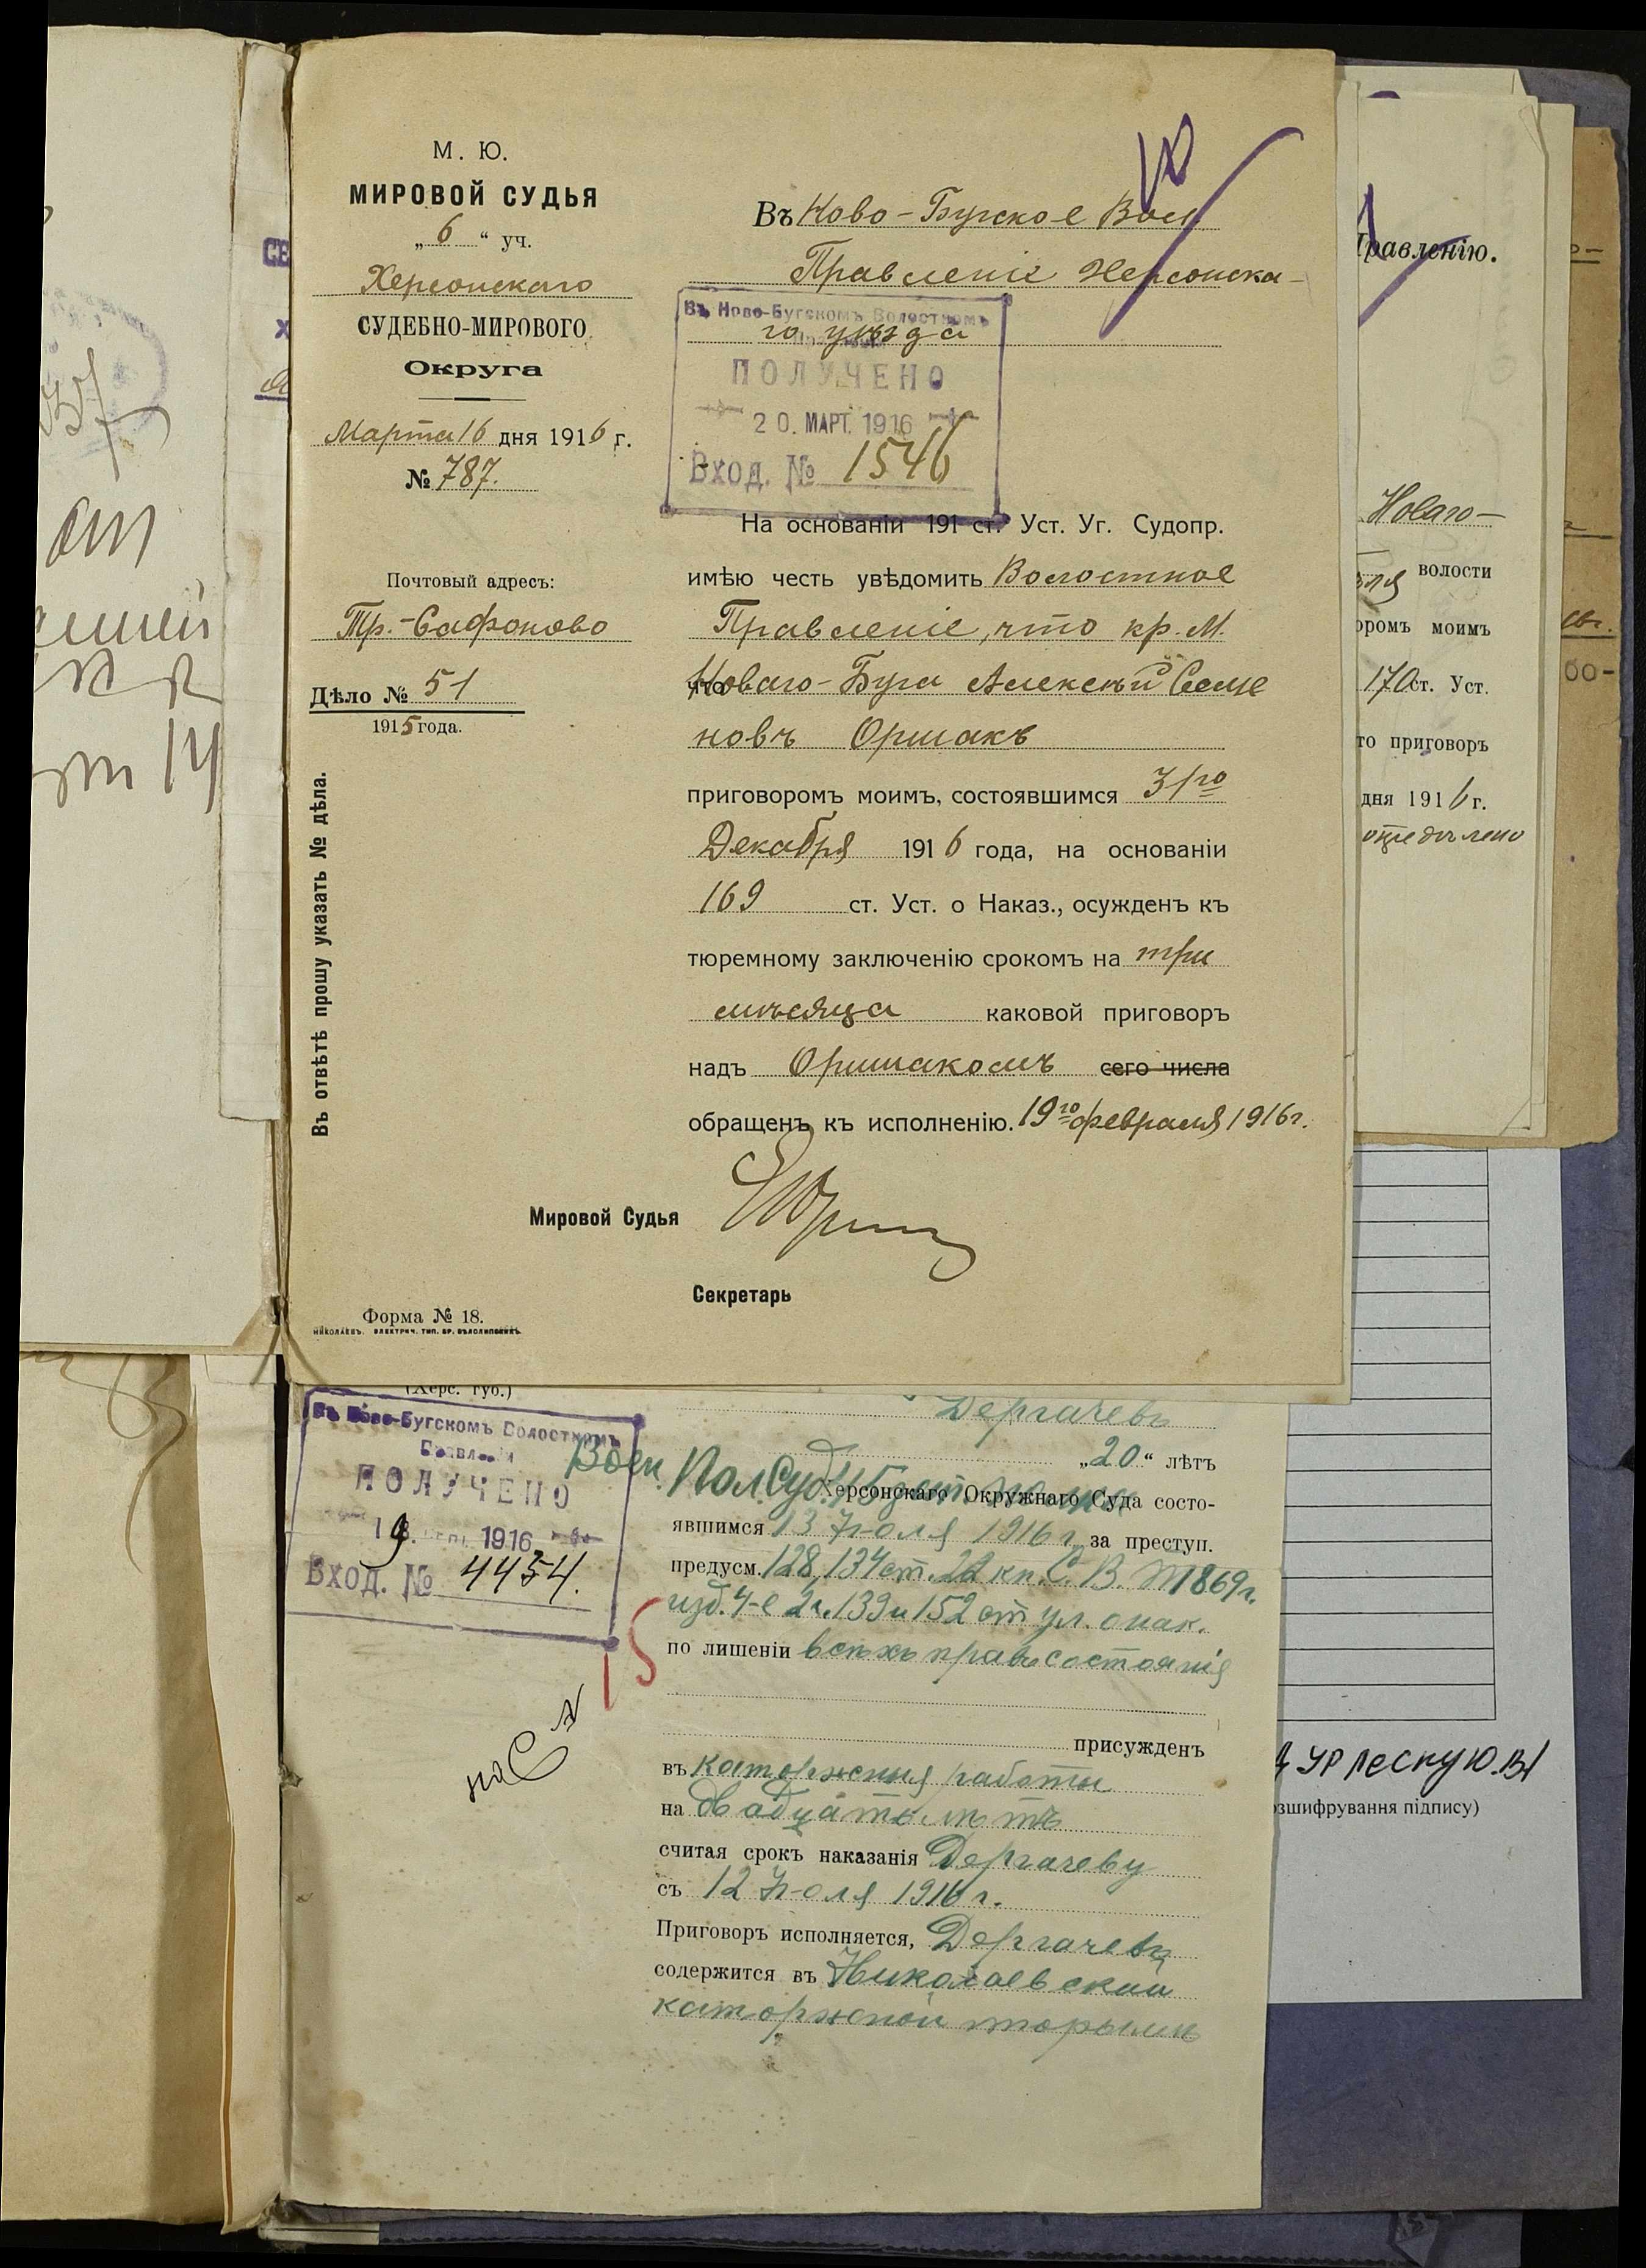 М. Ю.
МИРОВОЙ СУДЬЯ
„ 6 “ уч.
Херсонскаго
СУДЕБНО-МИРОВОГО
Округа
Марта 16 дня 1916 г.
№ 787.
Почтовый адресъ:
Тр.-Сафоново
Дѣло № 51
1915 года.
Въ отвѣтѣ прошу указать № дѣла.
Въ Ново-Бугское Вол.
Правленіе Херсонска-
го уѣзда
Въ Ново-Бугскомъ Волостномъ
ПОЛУЧЕНО
20. МАРТ. 1916
Вход. № 1546
На основаніи 191 ст. Уст. Уг. Судопр.
имѣю честь увѣдомить Волостное
Правленіе, что кр. М.
что Новаго-Буга Алексѣй Семе
новъ Оршакъ
приговоромъ моимъ, состоявшимся 31го
Декабря 1916 года, на основаніи
169 ст. Уст. о Наказ., осужденъ къ
тюремному заключенію срокомъ на три
мѣсяца каковой приговоръ
надъ Оршакомъ сего числа
обращенъ къ исполненію. 19го февраля 1916г.
Мировой Судья
Секретарь
Форма № 18.
НИКОЛАЕВЪ. ЭЛЕКТРИЧ. ТИП. БР. БѢЛОЛИПСКИХЪ.
(Херс. Губ.)
Въ Ново-Бугскомъ Волостномъ
Правленіи
ПОЛУЧЕНО
1916
Вход. № 4434.
15
Дергачевъ
„20“ лѣтъ
Воен. Пол. Суд.
Херсонскаго Окружнаго Суда состо-
явшимся 13 Іюля 1916 г. за преступ.
предусм. 128, 134 ст. 22 кн. С. В. П 1869г.
изд. 4-е 2ч. 139 и 152 ст ул. о нак.
по лишеніи всѣхъ правъ состоянія
присужденъ
въ каторжныя работы
на двадцать лѣтъ
считая срокъ наказанія Дергачеву
съ 12 Іюля 1916 г.
Приговоръ исполняется, Дергачевъ
содержится въ Николаевской
каторжной тюрьмѣ
Правленію.
Новаго-
волости
ромъ моимъ
170 ст. Уст.
то приговоръ
дня 1916 г.
опредѣлено
озшифрування підпису)